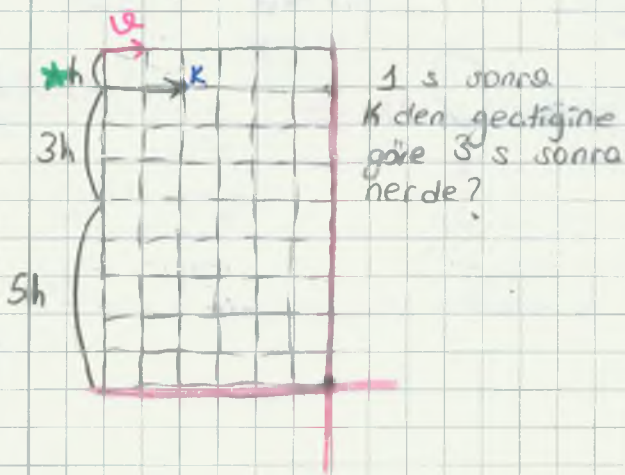 v
*h
K
3h
5h
1 s sonra
K den geçtiğine
göre 3 s sonra
nerde?